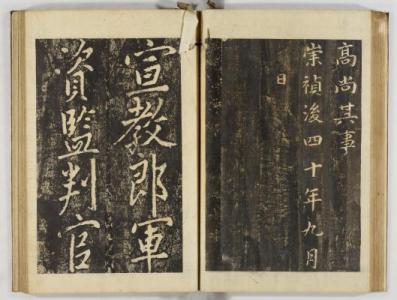 高尚其事
崇禎後四十年九月
日
宣教郎軍
資監判官